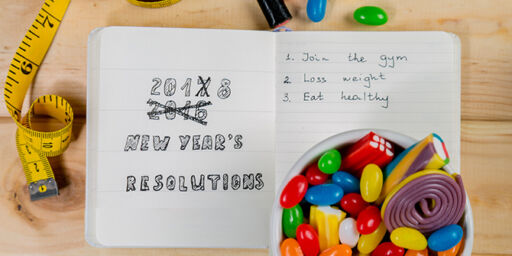 20178
2016
NEW YEAR'S
RESOLUTIONS
1. Join the gym
2. Loss weight
3. Eat healthy